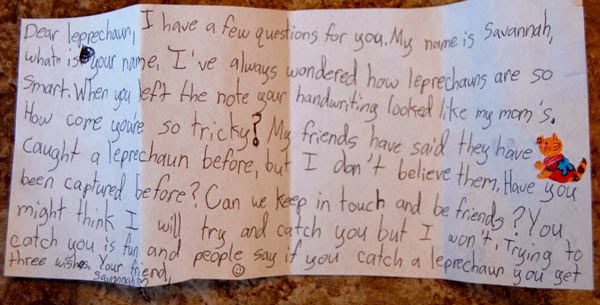 Dear leprechaun, I have a few questions for you. My name is Savannah,
what is your name. I've always wondered how leprechauns are so
smart. When you left the note your handwriting looked like my mom's.
How come you're so tricky? My friends have said they have
caught a leprechaun before, but I don't believe them. Have you
been captured before? Can we keep in touch and be friends? You
might think I will try and catch you but I won't. Trying to
catch you is fun and people say if you catch a leprechaun you get
three wishes. Your friend,
Savannah